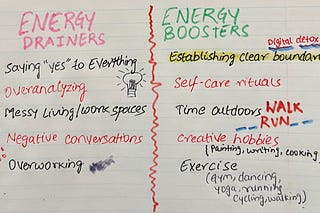 ENERGY
DRAINERS
Saying "yes" to Everything
Overanalyzing
Messy Living/work spaces
Negative conversations
Overworking
ENERGY
BOOSTERS
Digital detox
Establishing clear boundar
Self-care rituals
Time outdoors WALK
RUN
Creative hobbies
(Painting, writing, cooking)
Exercise
(Gym, dancing,
yoga, running
cycling, walking)